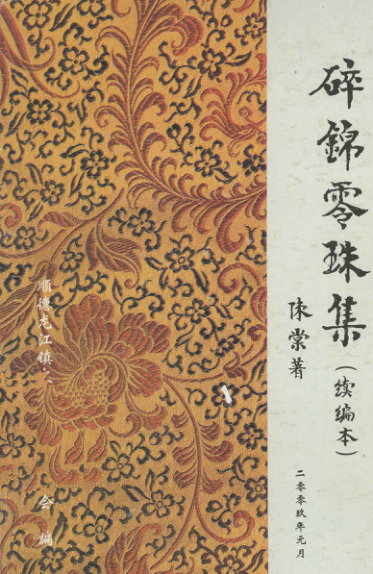 碎錦零珠集
(续编本)
陈棠著
二零零玖年元月
顺德龙江镇
会 编